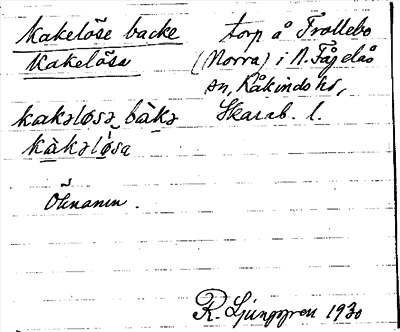 Kakelöse backe torp å Trollebo
Kakelösa (Norra) i N. Fågelås
sn, Kåkinds hd,
kakəløsə bàkə Skarab. l.
kàkəlø̀sa
Öknamn.
R. Ljunggren 1930